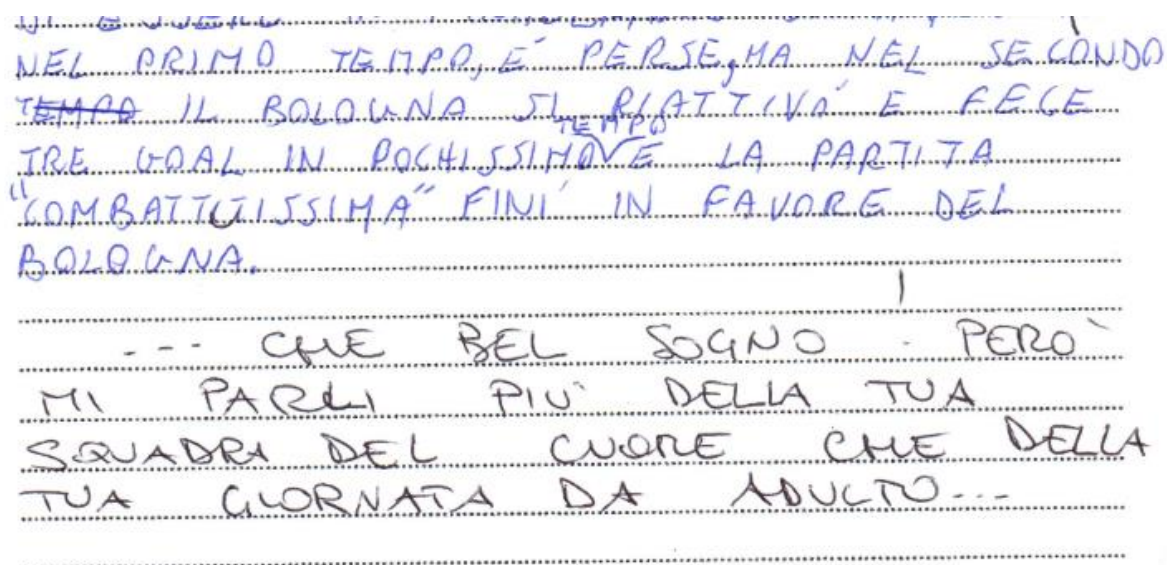 NEL PRIMO TEMPO, E' PERSE, MA NEL SECONDO
TEMPO IL BOLOGNA SI RIATTIVA' E FECE
TEMPO
TRE GOAL IN POCHISSIMO E LA PARTITA
"COMBATTUTISSIMA" FINI' IN FAVORE DEL
BOLOGNA.
--- CHE BEL SOGNO ! PERO'
MI PARLI PIU' DELLA TUA
SQUADRA DEL CUORE CHE DELLA
TUA GIORNATA DA ADULTO...